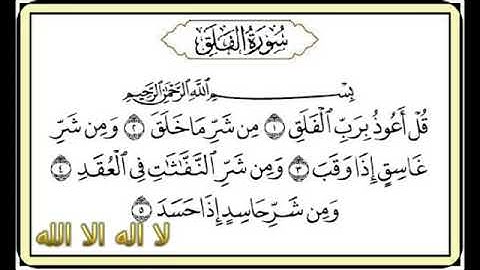 سُورَةُ الفَلَقِ
بِسْمِ اللَّهِ الرَّحْمَٰنِ الرَّحِيمِ
قُلْ أَعُوذُ بِرَبِّ الْفَلَقِ ۝١ مِن شَرِّ مَا خَلَقَ ۝٢ وَمِن شَرِّ
غَاسِقٍ إِذَا وَقَبَ ۝٣ وَمِن شَرِّ النَّفَّاثَاتِ فِي الْعُقَدِ ۝٤
وَمِن شَرِّ حَاسِدٍ إِذَا حَسَدَ ۝٥
لا اله الا الله